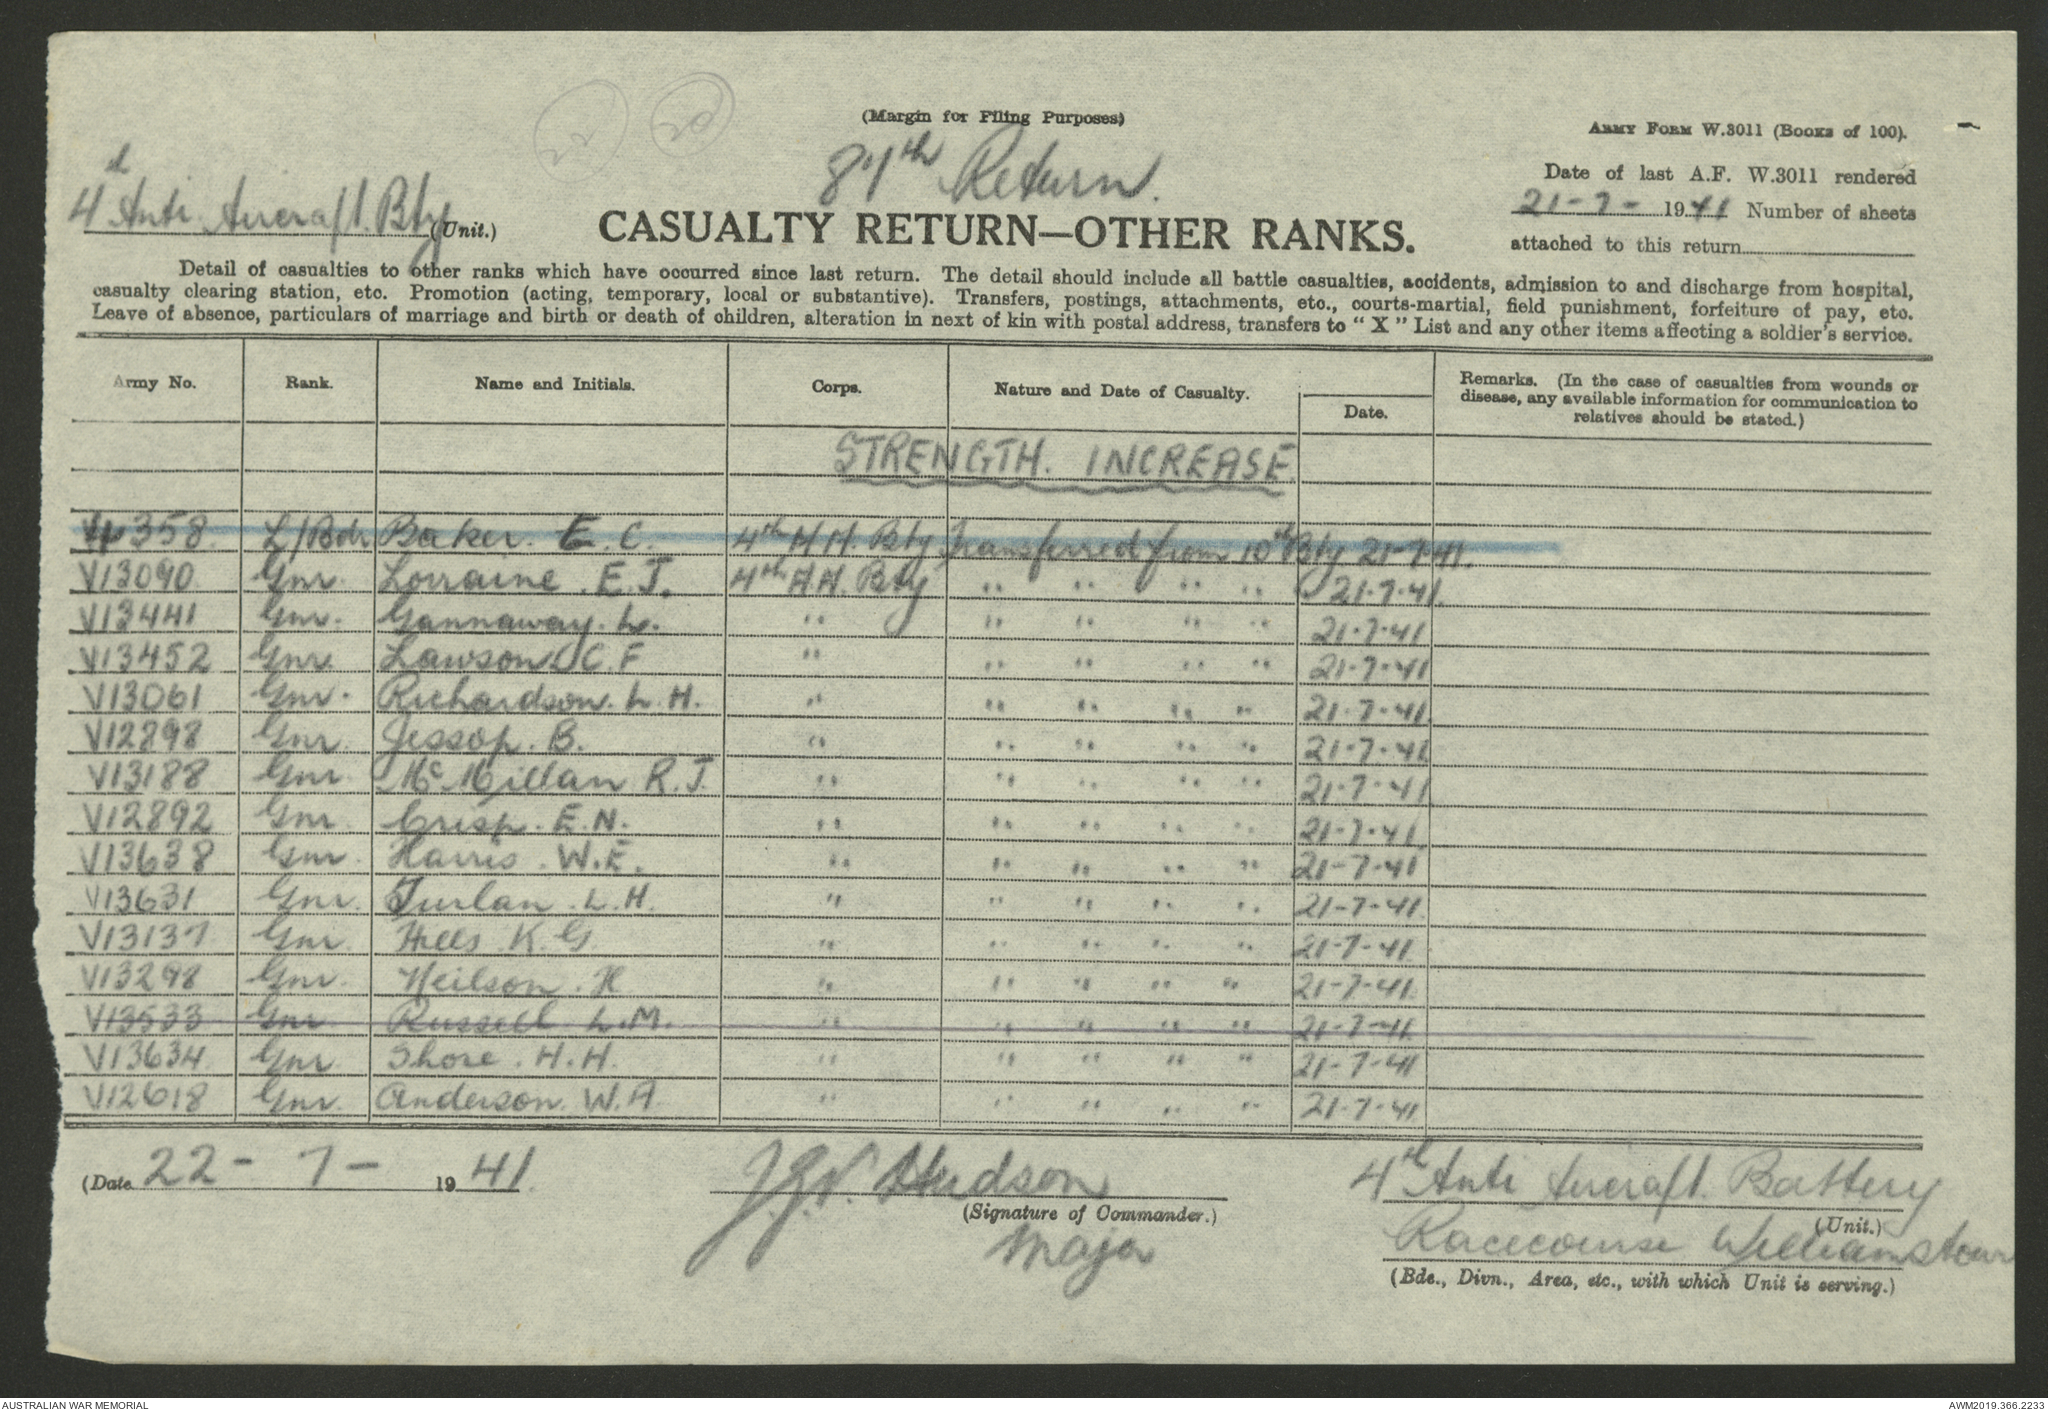 22 20
(Margin for Filing Purposes)
ARMY FORM W.3011 (Books of 100).
87th Return.
4th Anti Aircraft. Bty (Unit.)
CASUALTY RETURN—OTHER RANKS.
Date of last A.F. W.3011 rendered
21-7- 1941 Number of sheets
attached to this return
Detail of casualties to other ranks which have occurred since last return. The detail should include all battle casualties, accidents, admission to and discharge from hospital,
casualty clearing station, etc. Promotion (acting, temporary, local or substantive). Transfers, postings, attachments, etc., courts-martial, field punishment, forfeiture of pay, etc.
Leave of absence, particulars of marriage and birth or death of children, alteration in next of kin with postal address, transfers to "X" List and any other items affecting a soldier's service.
Army No. Rank. Name and Initials. Corps. Nature and Date of Casualty. Date. Remarks. (In the case of casualties from wounds or
disease, any available information for communication to
relatives should be stated.)
STRENGTH. INCREASE.
358. L/Bdr Baker. E. C. 4th A.A. Bty Transferred from 10th Bty 21-7-41.
V13090 Gnr. Lorraine. E.J. 4th A.A. Bty " " " " 21.7.41.
V13441 Gnr. Gannaway. L. " " " " " 21.7.41
V13452 Gnr. Lawson. C.F " " " " " 21.7.41
V13061 Gnr. Richardson. L.H. " " " " " 21.7.41.
V12898 Gnr. Jessop. B. " " " " " 21.7.41.
V13188 Gnr. McMillan R.J. " " " " " 21.7.41
V12892 Gnr. Crisp. E.N. " " " " " 21.7.41
V13638 Gnr. Harris. W.E. " " " " " 21-7-41
V13631 Gnr. Furlan. L.H. " " " " " 21-7-41
V13137 Gnr. Hills K.G. " " " " " 21-7-41
V13298 Gnr. Neilson. H " " " " " 21-7-41.
V13533 Gnr Russell L.M. " " " " " 21-7-41
V13634 Gnr. Shore. H.H. " " " " " 21-7-41
V12618 Gnr. Anderson. W.A. " " " " " 21.7.41
(Date 22-7- 1941.
J.G.N. Hudson
(Signature of Commander.)
Major
4th Anti Aircraft. Battery
(Unit.)
Racecourse Williamstown
(Bde., Divn., Area, etc., with which Unit is serving.)
AUSTRALIAN WAR MEMORIAL
AWM2019.366.2233